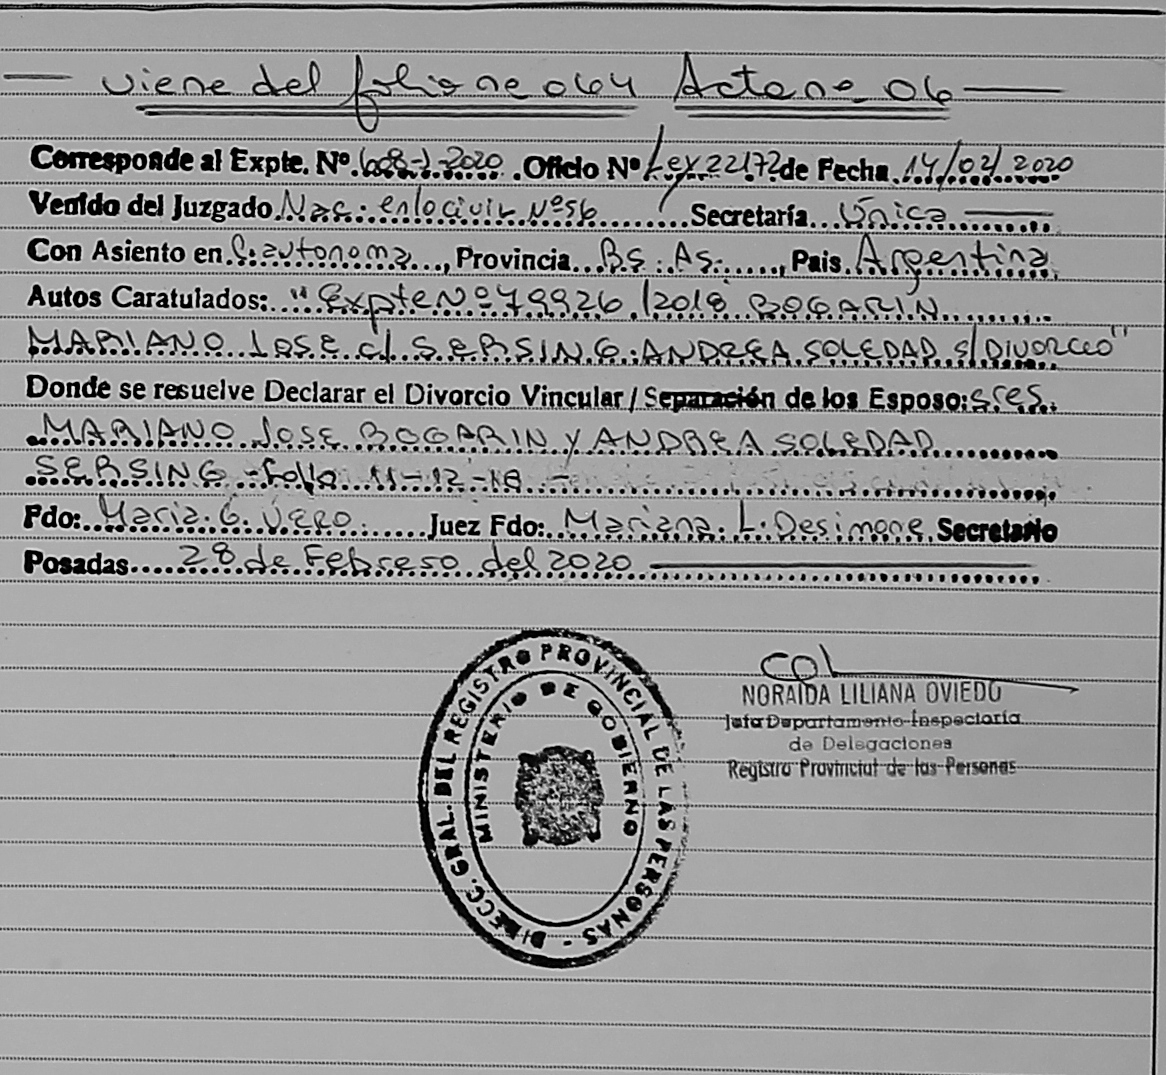 viene del folio nº 064 Acta nº 06
Corresponde al Expte. Nº 608-J-2020. Oficio Nº Ley 22172 de Fecha 14/02/2020
Venido del Juzgado Nac. en lo civil Nº 56 Secretaría Única
Con Asiento en C. autonoma, Provincia Bs. As., Pais Argentina
Autos Caratulados: "Expte Nº 79926/2018 BOGARIN
MARIANO JOSE c/ SERSING ANDREA SOLEDAD s/ DIVORCIO"
Donde se resuelve Declarar el Divorcio Vincular / Separación de los Esposo: sres.
MARIANO JOSE BOGARIN Y ANDREA SOLEDAD
SERSING - Fallo 11-12-18 -
Fdo: Maria G. Vero Juez Fdo: Mariana L. Desimone Secretario
Posadas 28 de Febrero del 2020
DIRECC. GRAL. DEL REGISTRO PROVINCIAL DE LAS PERSONAS -
MINISTERIO DE GOBIERNO
NORAIDA LILIANA OVIEDO
Jefa Departamento Inspectoría
de Delegaciones
Registro Provincial de las Personas